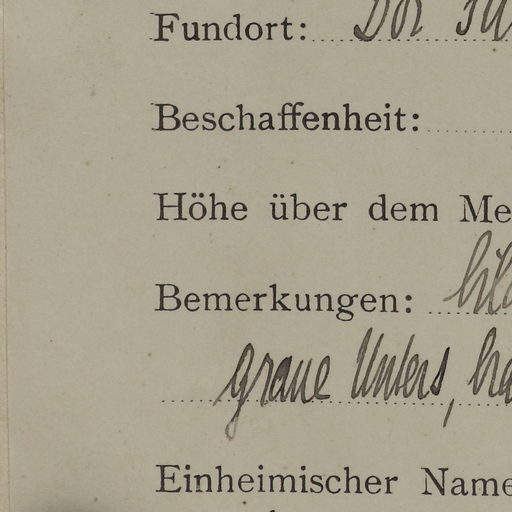 Fundort: Dor
Beschaffenheit:
Höhe über dem Me
Bemerkungen: bild
graue Unters, bra
Einheimischer Name